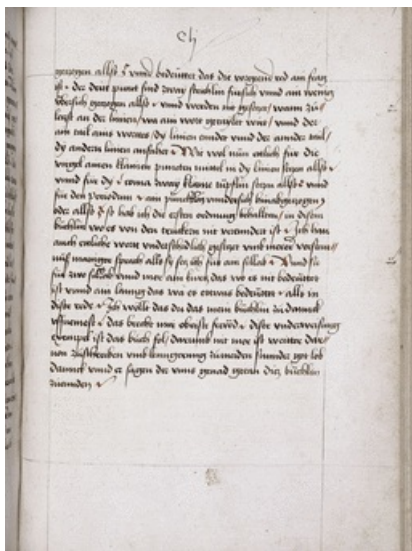 gezogen allso vnnd bedeüttet das die red ain frag
ist · der dritt punct sind zway strichlin fürsich vnnd ain wenig
übersich gezogen allso vnnd werden nur gesetzt / wann zu
letzst an der linien / wa ain wort getaylet wirt / vnnd der
ain tail ains wortes / dy linien endet vnnd der annder tail /
dy andern linien anfahet · Wie wol nun ettlich für die
virgel ainen klainen puncten mittel in dy linien setzen allso ·
vnnd für dy · coma zway klaine tüpflin setzen allso : vnnd
für den periodum · ain pünctlin vnndersich hinabgezogen
oder allso so hab ich die ersten ordnung behallten / in disem
büchlin wo es von den truckern nit verenndert ist · Ich han
auch ettliche wort vnderschidlich gesetzt
sprach allso sy setz ich für ain sillab · Vnnd
für zwo sillab vnnd mer ain kurtz das wo es nit bedeüttet
ist vnnd ain lanng das wa es ettwas bedeüttet · alls in
diser rede · Ich wöllt das du das mein büchlin zu danck
vffnemest · das brecht mir oberste freüd · diser vnderweisung
exempel ist das büch fol / darumb nit mer ist weitter dar
von zuschreiben vmb lenngerung zumeiden sunnder got lob
danck vnnd er sagen der vnns genad geton ditz büchlin
zuennden